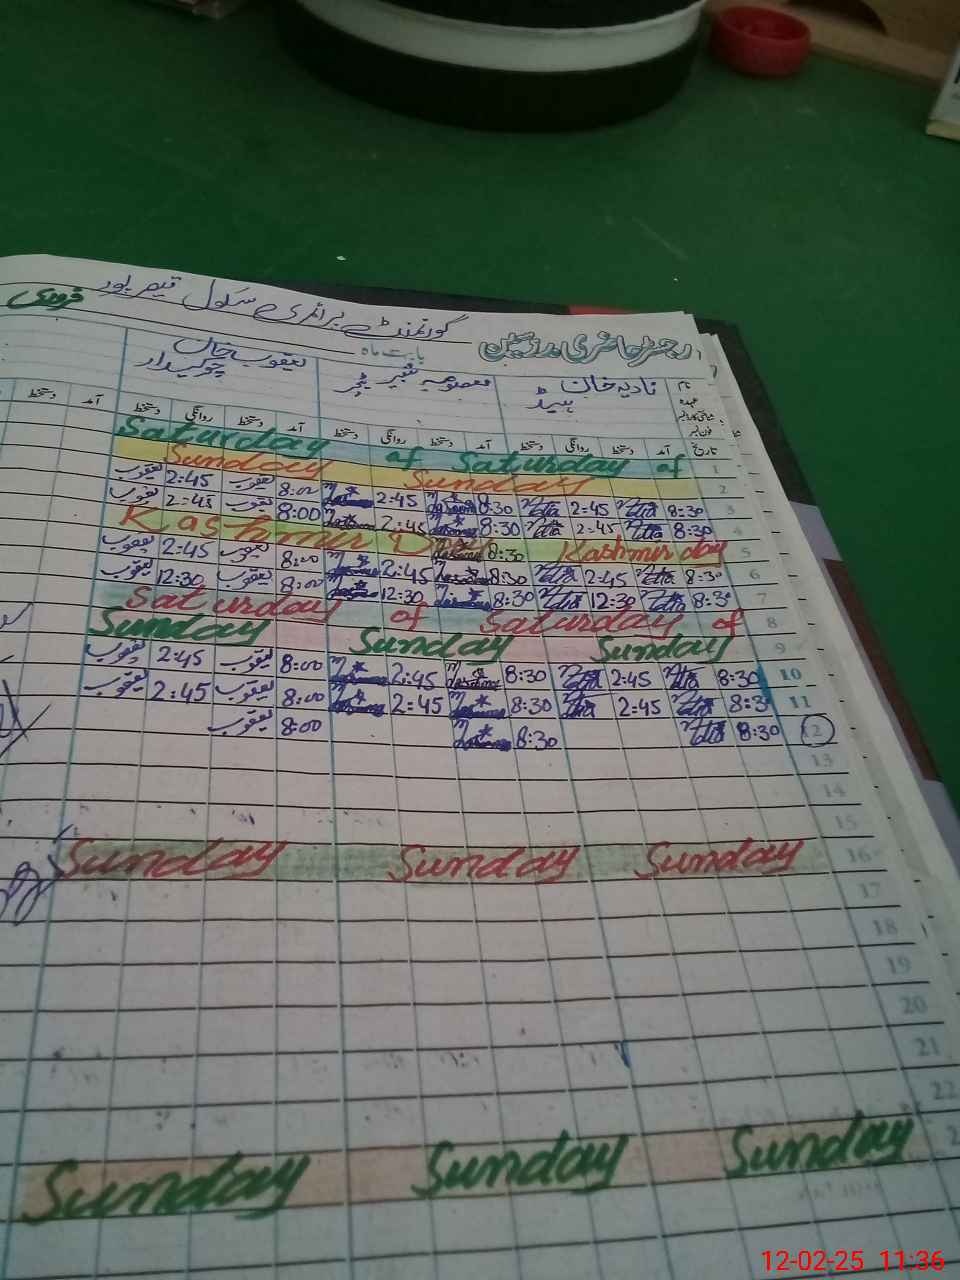 گورنمنٹ پرائمری سکول قیصر پور
رجسٹر حاضری مدرسین بابت ماہ فروری
نام نادیہ خان معصومہ شبیر یعقوب خان
عہدہ ہیڈ ٹیچر چوکیدار
تاریخ آمد دستخط روانگی دستخط آمد دستخط روانگی دستخط آمد دستخط روانگی دستخط آمد دستخط
1 Saturday of Saturday of
2 Sunday Sunday
3 8:30 Nadia 2:45 Nadia 8:30 2:45 8:00 یعقوب 2:45 یعقوب
4 8:30 Nadia 2:45 Nadia 8:30 2:45 8:00 یعقوب 2:45 یعقوب
5 Kashmir day 8:30 Kashmir Day
6 8:30 Nadia 2:45 Nadia 8:30 2:45 8:00 یعقوب 2:45 یعقوب
7 8:30 Nadia 12:30 Nadia 8:30 12:30 8:00 یعقوب 12:30 یعقوب
8 Saturday of Saturday of
9 Sunday Sunday Sunday
10 8:30 Nadia 2:45 Nadia 8:30 2:45 8:00 یعقوب 2:45 یعقوب
11 8:30 Nadia 2:45 Nadia 8:30 2:45 8:00 یعقوب 2:45 یعقوب
12 8:30 Nadia 8:30 8:00 یعقوب
13
14
15
16 Sunday Sunday Sunday
17
18
19
20
21
22
Sunday Sunday Sunday
12-02-25 11:36